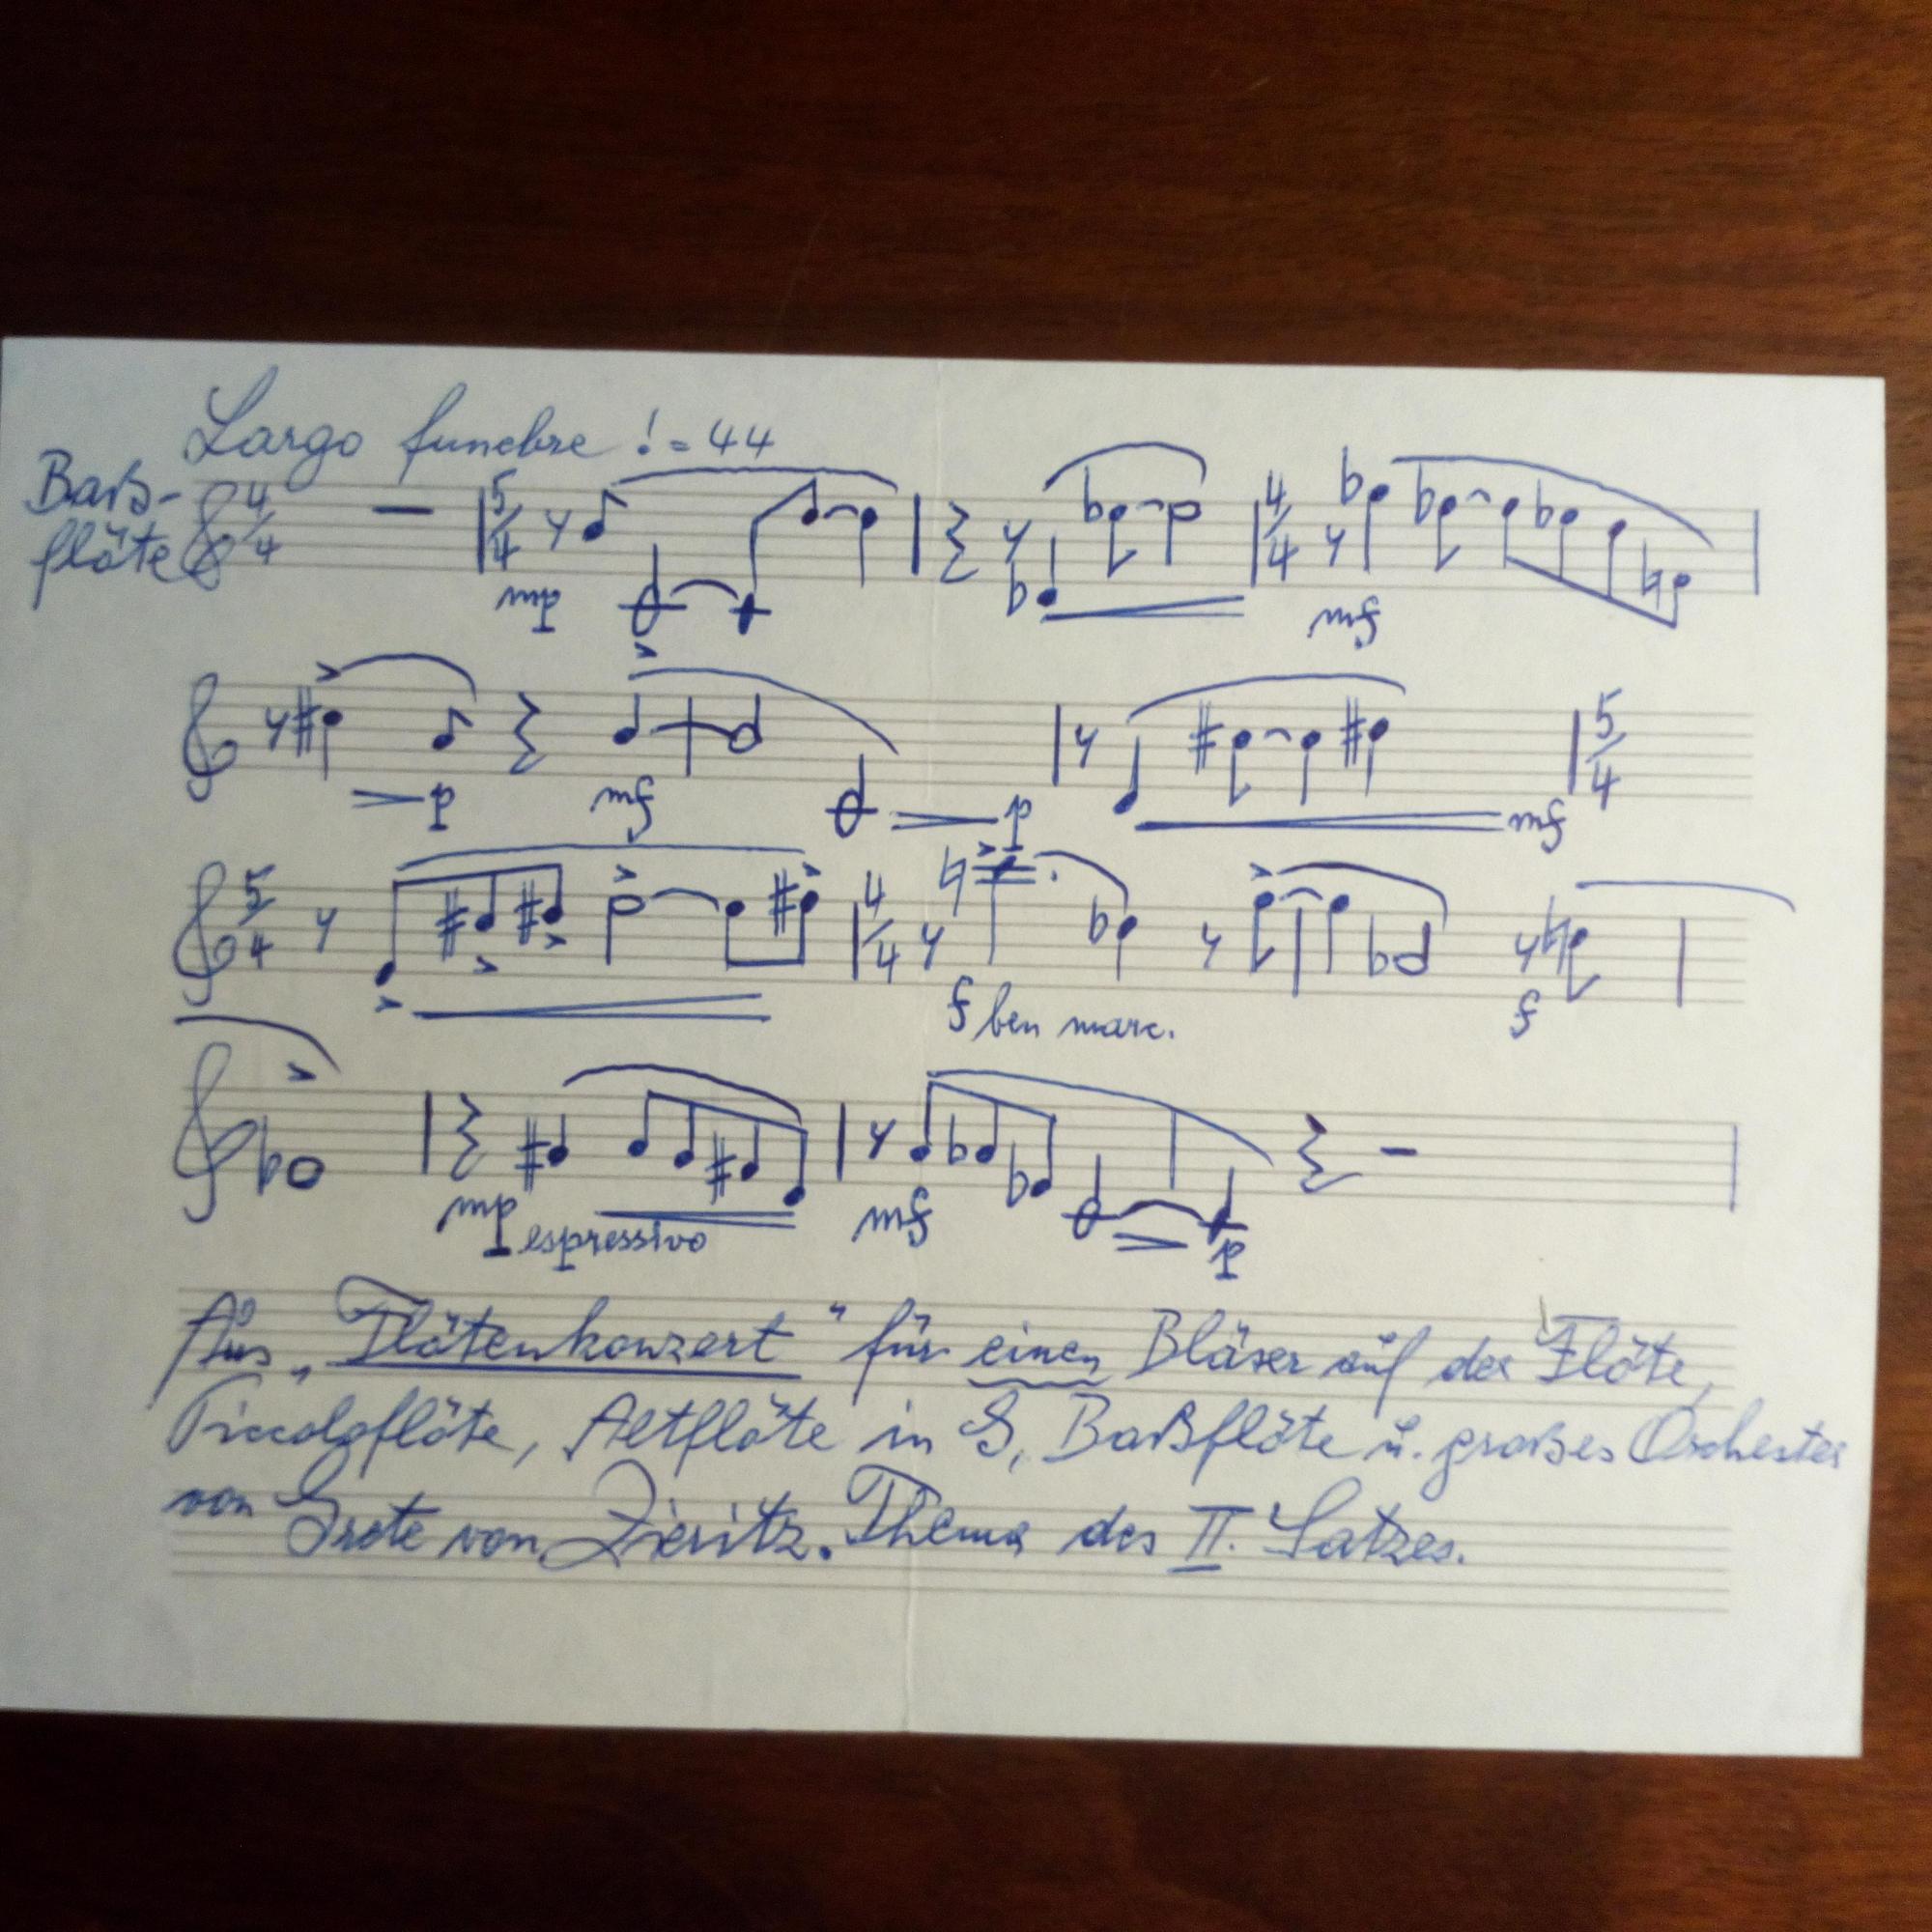 Largo funebre ♩= 44
Baß-
flöte 4/4 5/4 mp 4/4 mf
p mf p mf 5/4
5/4 4/4 f ben marc. f
mp espressivo mf p
Aus „Flötenkonzert" für einen Bläser auf der Flöte,
Piccoloflöte, Altflöte in G, Baßflöte u. großes Orchester
von Grete von Zieritz. Thema des II. Satzes.